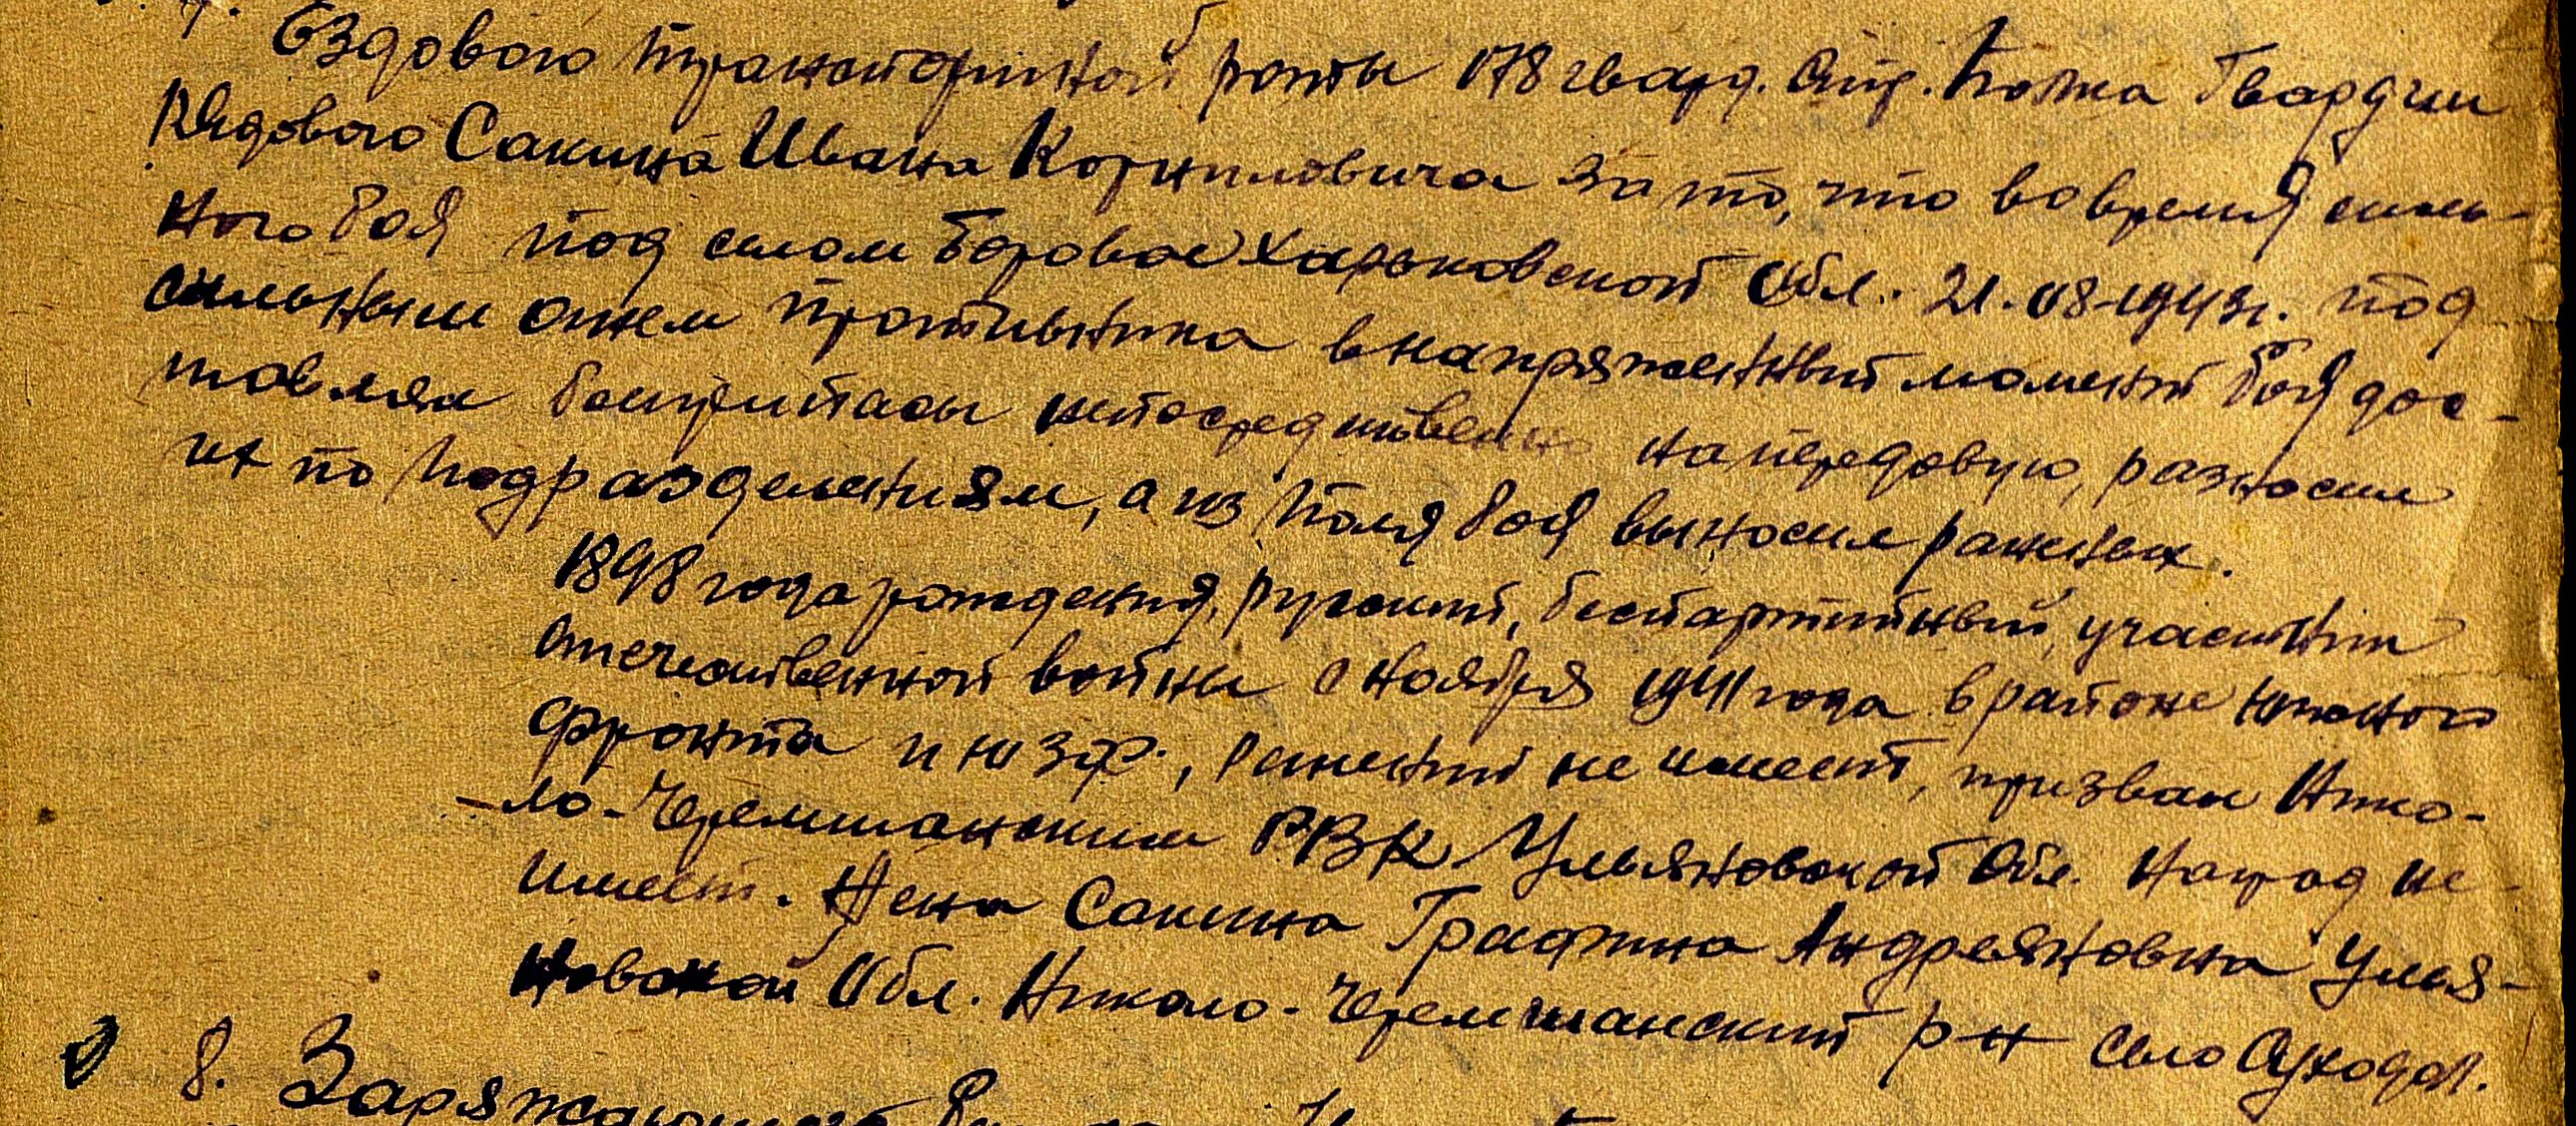 7. Ездового транспортной роты 178 гвард. стр. полка Гвардии
Рядового Сакина Ивана Корниловича за то, что во время силь-
ного боя под селом Боровое Харьковской Обл. 21.08.1943г. под
сильным огнем противника в напряженный момент боя дос-
тавлял боеприпасы непосредственно на передовую, разносил
их по подразделениям, а из поля боя выносил раненых.
1898 года рождения, русский, беспартийный, участник
отечественной войны с ноября 1941 года в районе Южного
фронта и ЮЗФ., ранений не имеет, призван Нико-
ло-Черемшанским РВК Ульяновской Обл. Наград не-
имеет. Жена Сакина Графина Андреяновна Улья-
новской Обл. Николо-Черемшанский р-н село Суходол.
8. Заряжающего